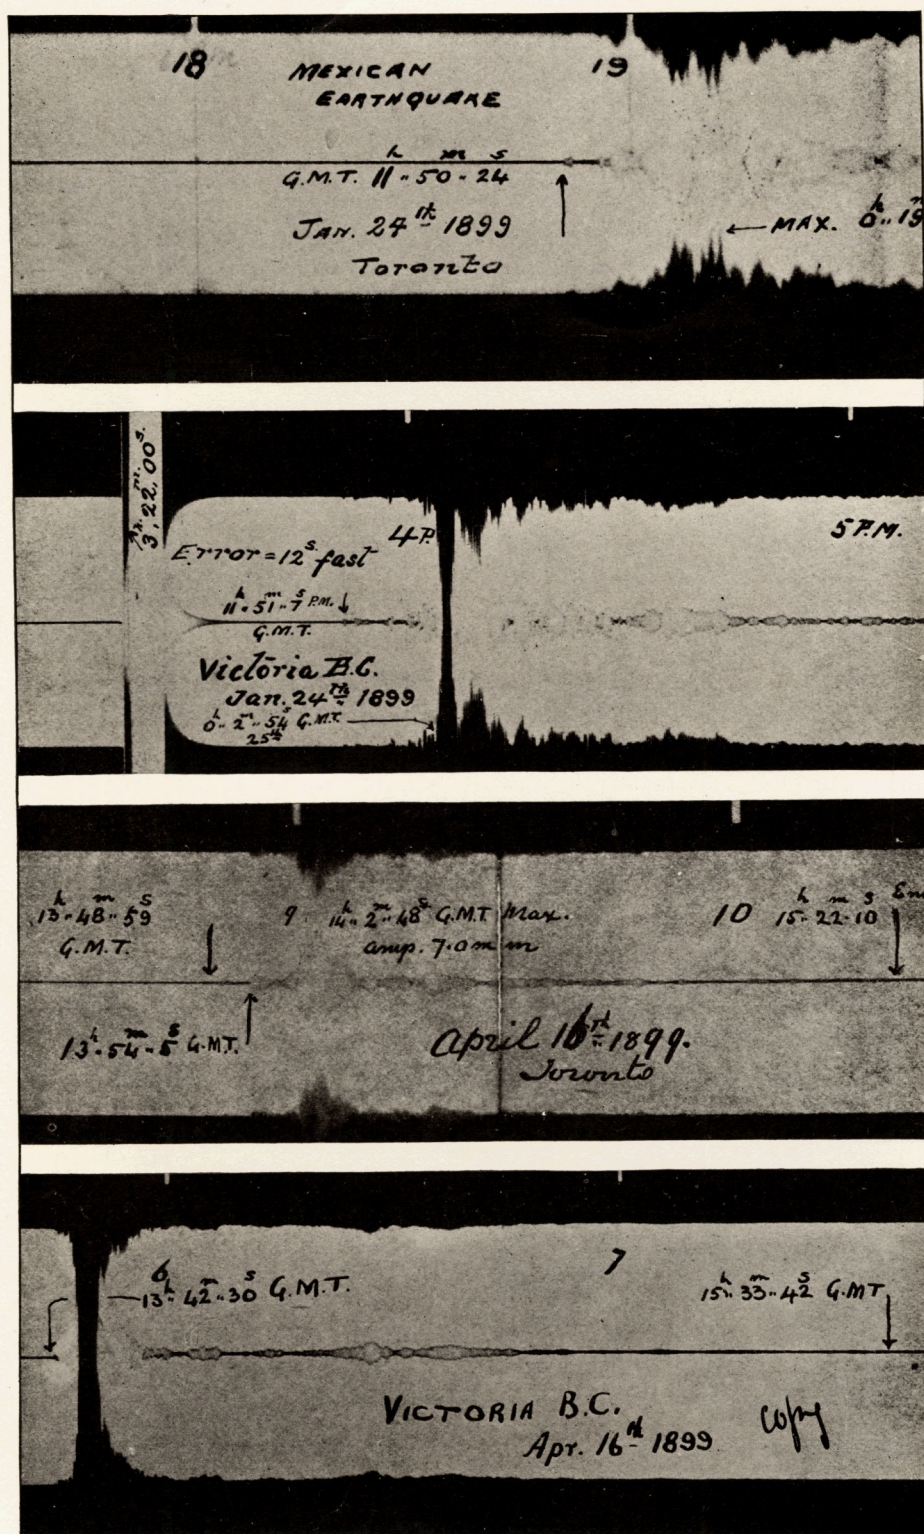 18
19
MEXICAN
EARTHQUAKE
h m s
G.M.T. 11-50-24
JAN. 24th 1899
Toronto
← MAX. 0h..19m
h. m. s.
3, 22, 00
4 P.
5 P.M.
Error = 12s fast
11h-51m-7s P.M.
G.M.T.
Victoria B.C.
Jan. 24th 1899
0h.. 2m.. 54s G.M.T.
25th
13h-48m-59s
G.M.T.
9
14h-2m-48s G.M.T Max.
amp. 7.0 mm
10
15h-22m-10s
13h-54m-5s G.M.T.
April 16th 1899.
Toronto
6
7
13h-42m-30s G.M.T.
15h-33m-42s G.M.T
VICTORIA B.C.
Apr. 16th 1899
copy